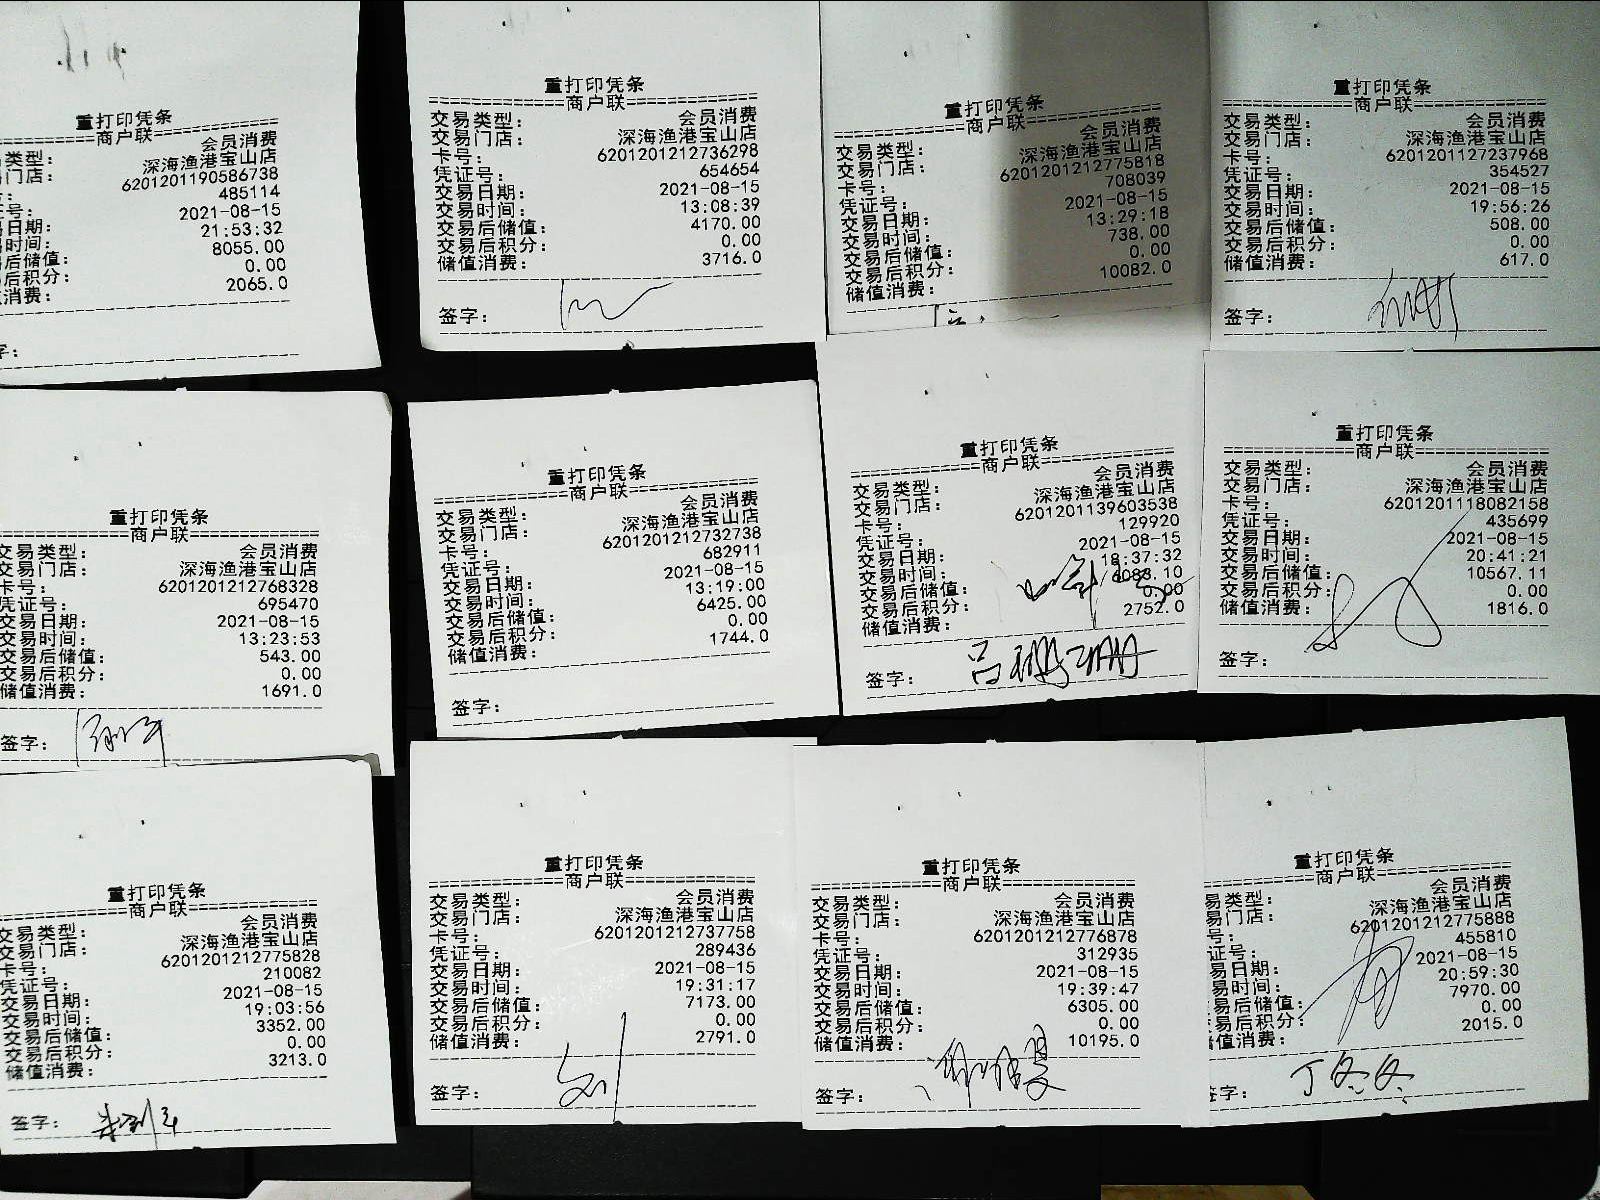 重打印凭条
商户联
类型： 会员消费
门店： 深海渔港宝山店
6201201190586738
号： 485114
日期： 2021-08-15
时间： 21:53:32
后储值： 8055.00
后积分： 0.00
消费： 2065.0
字：
重打印凭条
商户联
交易类型： 会员消费
交易门店： 深海渔港宝山店
卡号： 6201201212736298
凭证号： 654654
交易日期： 2021-08-15
交易时间： 13:08:39
交易后储值： 4170.00
交易后积分： 0.00
储值消费： 3716.0
签字：
重打印凭条
商户联
交易类型： 会员消费
交易门店： 深海渔港宝山店
卡号： 6201201212775818
凭证号： 708039
交易日期： 2021-08-15
交易时间： 13:29:18
交易后储值： 738.00
交易后积分： 0.00
储值消费： 10082.0
重打印凭条
商户联
交易类型： 会员消费
交易门店： 深海渔港宝山店
卡号： 6201201127237968
凭证号： 354527
交易日期： 2021-08-15
交易时间： 19:56:26
交易后储值： 508.00
交易后积分： 0.00
储值消费： 617.0
签字：
重打印凭条
商户联
交易类型： 会员消费
交易门店： 深海渔港宝山店
卡号： 6201201212768328
凭证号： 695470
交易日期： 2021-08-15
交易时间： 13:23:53
交易后储值： 543.00
交易后积分： 0.00
储值消费： 1691.0
签字：
重打印凭条
商户联
交易类型： 会员消费
交易门店： 深海渔港宝山店
卡号： 6201201212732738
凭证号： 682911
交易日期： 2021-08-15
交易时间： 13:19:00
交易后储值： 6425.00
交易后积分： 0.00
储值消费： 1744.0
签字：
重打印凭条
商户联
交易类型： 会员消费
交易门店： 深海渔港宝山店
卡号： 6201201139603538
凭证号： 129920
交易日期： 2021-08-15
交易时间： 18:37:32
交易后储值： 6083.10
交易后积分： 0.00
储值消费： 2752.0
签字：
重打印凭条
商户联
交易类型： 会员消费
交易门店： 深海渔港宝山店
卡号： 6201201118082158
凭证号： 435699
交易日期： 2021-08-15
交易时间： 20:41:21
交易后储值： 10567.11
交易后积分： 0.00
储值消费： 1816.0
签字：
重打印凭条
商户联
交易类型： 会员消费
交易门店： 深海渔港宝山店
卡号： 6201201212775828
凭证号： 210082
交易日期： 2021-08-15
交易时间： 19:03:56
交易后储值： 3352.00
交易后积分： 0.00
储值消费： 3213.0
签字：
重打印凭条
商户联
交易类型： 会员消费
交易门店： 深海渔港宝山店
卡号： 6201201212737758
凭证号： 289436
交易日期： 2021-08-15
交易时间： 19:31:17
交易后储值： 7173.00
交易后积分： 0.00
储值消费： 2791.0
签字： 刘
重打印凭条
商户联
交易类型： 会员消费
交易门店： 深海渔港宝山店
卡号： 6201201212776878
凭证号： 312935
交易日期： 2021-08-15
交易时间： 19:39:47
交易后储值： 6305.00
交易后积分： 0.00
储值消费： 10195.0
签字：
重打印凭条
商户联
易类型： 会员消费
易门店： 深海渔港宝山店
号： 6201201212775888
证号： 455810
易日期： 2021-08-15
易时间： 20:59:30
易后储值： 7970.00
易后积分： 0.00
值消费： 2015.0
签字： 丁冬冬